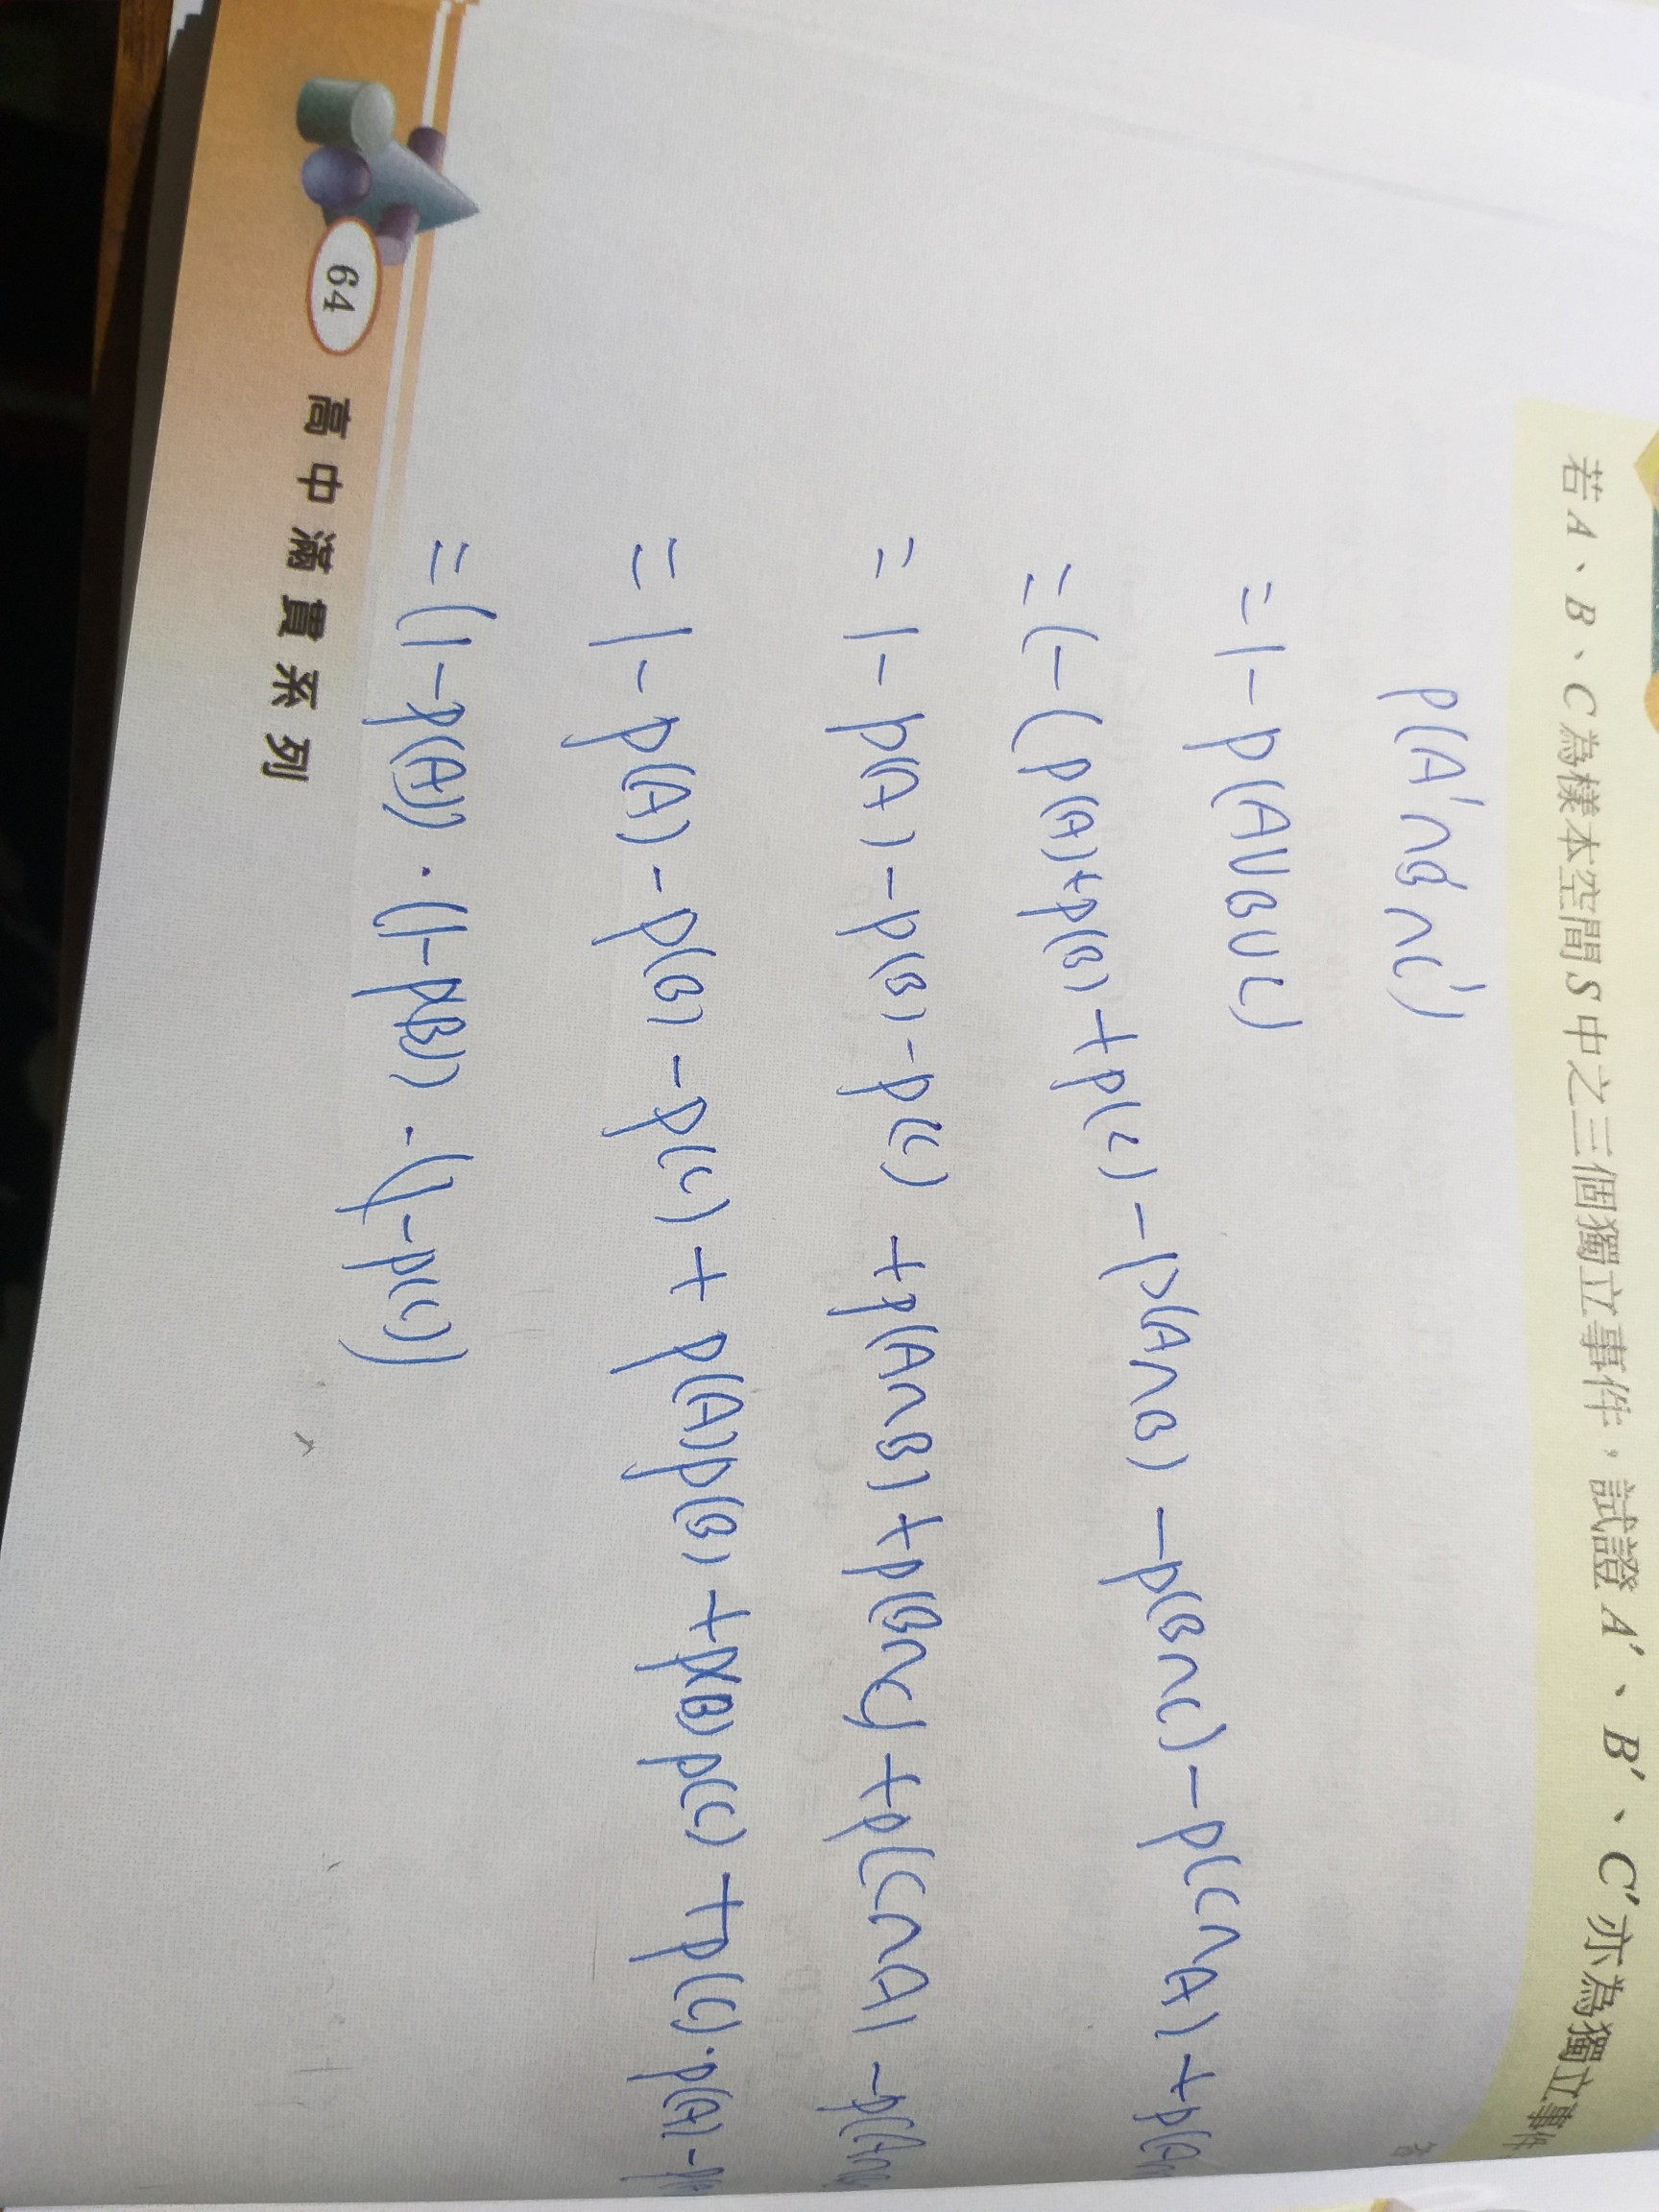 若A、B、C為樣本空間S中之三個獨立事件，試證A'、B'、C'亦為獨立事件
P(A'∩B'∩C')
=1-P(A∪B∪C)
=1-(P(A)+P(B)+P(C)-P(A∩B)-P(B∩C)-P(A∩C)+P(A∩
=1-P(A)-P(B)-P(C)+P(A∩B)+P(B∩C)+P(C∩A)-P(A∩
=1-P(A)-P(B)-P(C)+P(A)P(B)+P(B)P(C)+P(C)·P(A)-
=(1-P(A))·(1-P(B))·(1-P(C))
64 高中滿貫系列